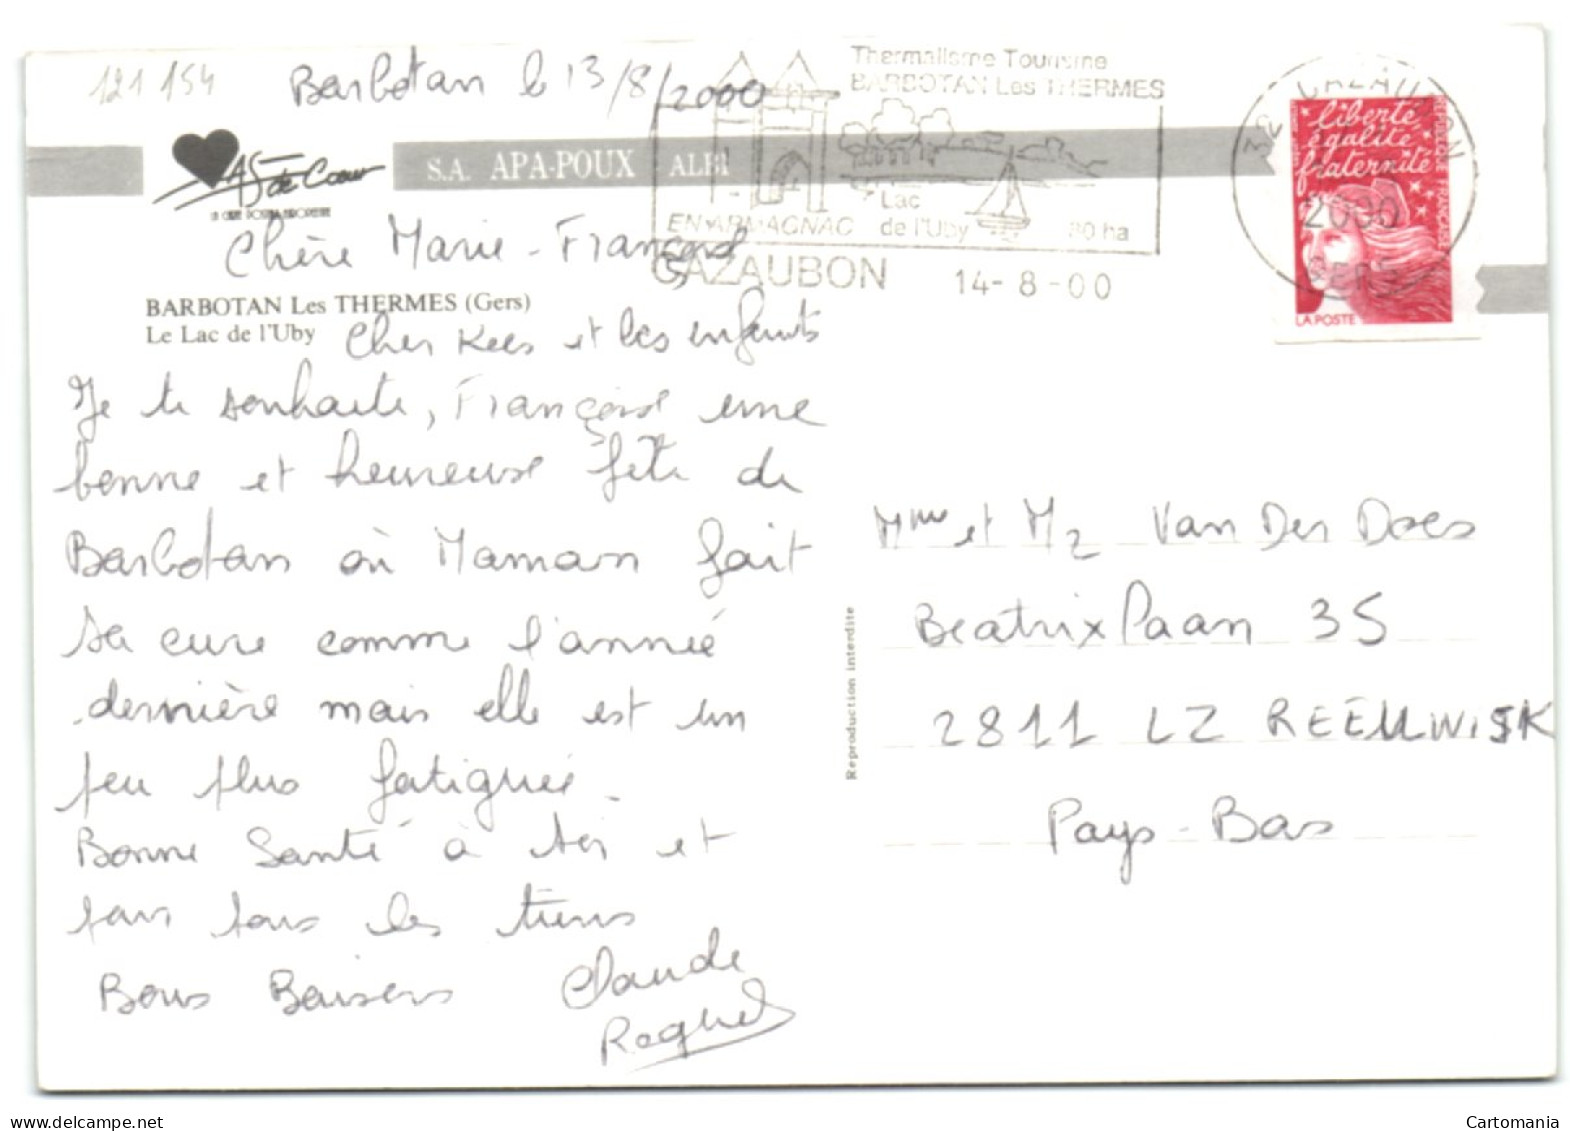 121 154
Barbotan le 13/8/2000
Thermalisme Tourisme
BARBOTAN Les THERMES
EN ARMAGNAC
Lac
de l'Uby
80 ha
CAZAUBON 14-8-00
32 CAZAUBON
2000
GERS
liberté
égalité
fraternité
REPUBLIQUE FRANÇAISE
LA POSTE
AS de Coeur
S.A. APA-POUX ALBI
Chère Marie-Françoise
BARBOTAN Les THERMES (Gers)
Le Lac de l'Uby
Cher Kees et les enfants
Je te souhaite, Françoise une
bonne et heureuse fête de
Barbotan où Maman fait
sa cure comme l'année
dernière mais elle est un
peu plus fatiguée.
Bonne Santé à toi et
pour tous les tiens
Bons Baisers Claude
Raquel
Reproduction interdite
Mme et Mr Van Der Does
Beatrix Laan 35
2811 LZ REEUWISK
Pays-Bas
Cartomania
www.delcampe.net